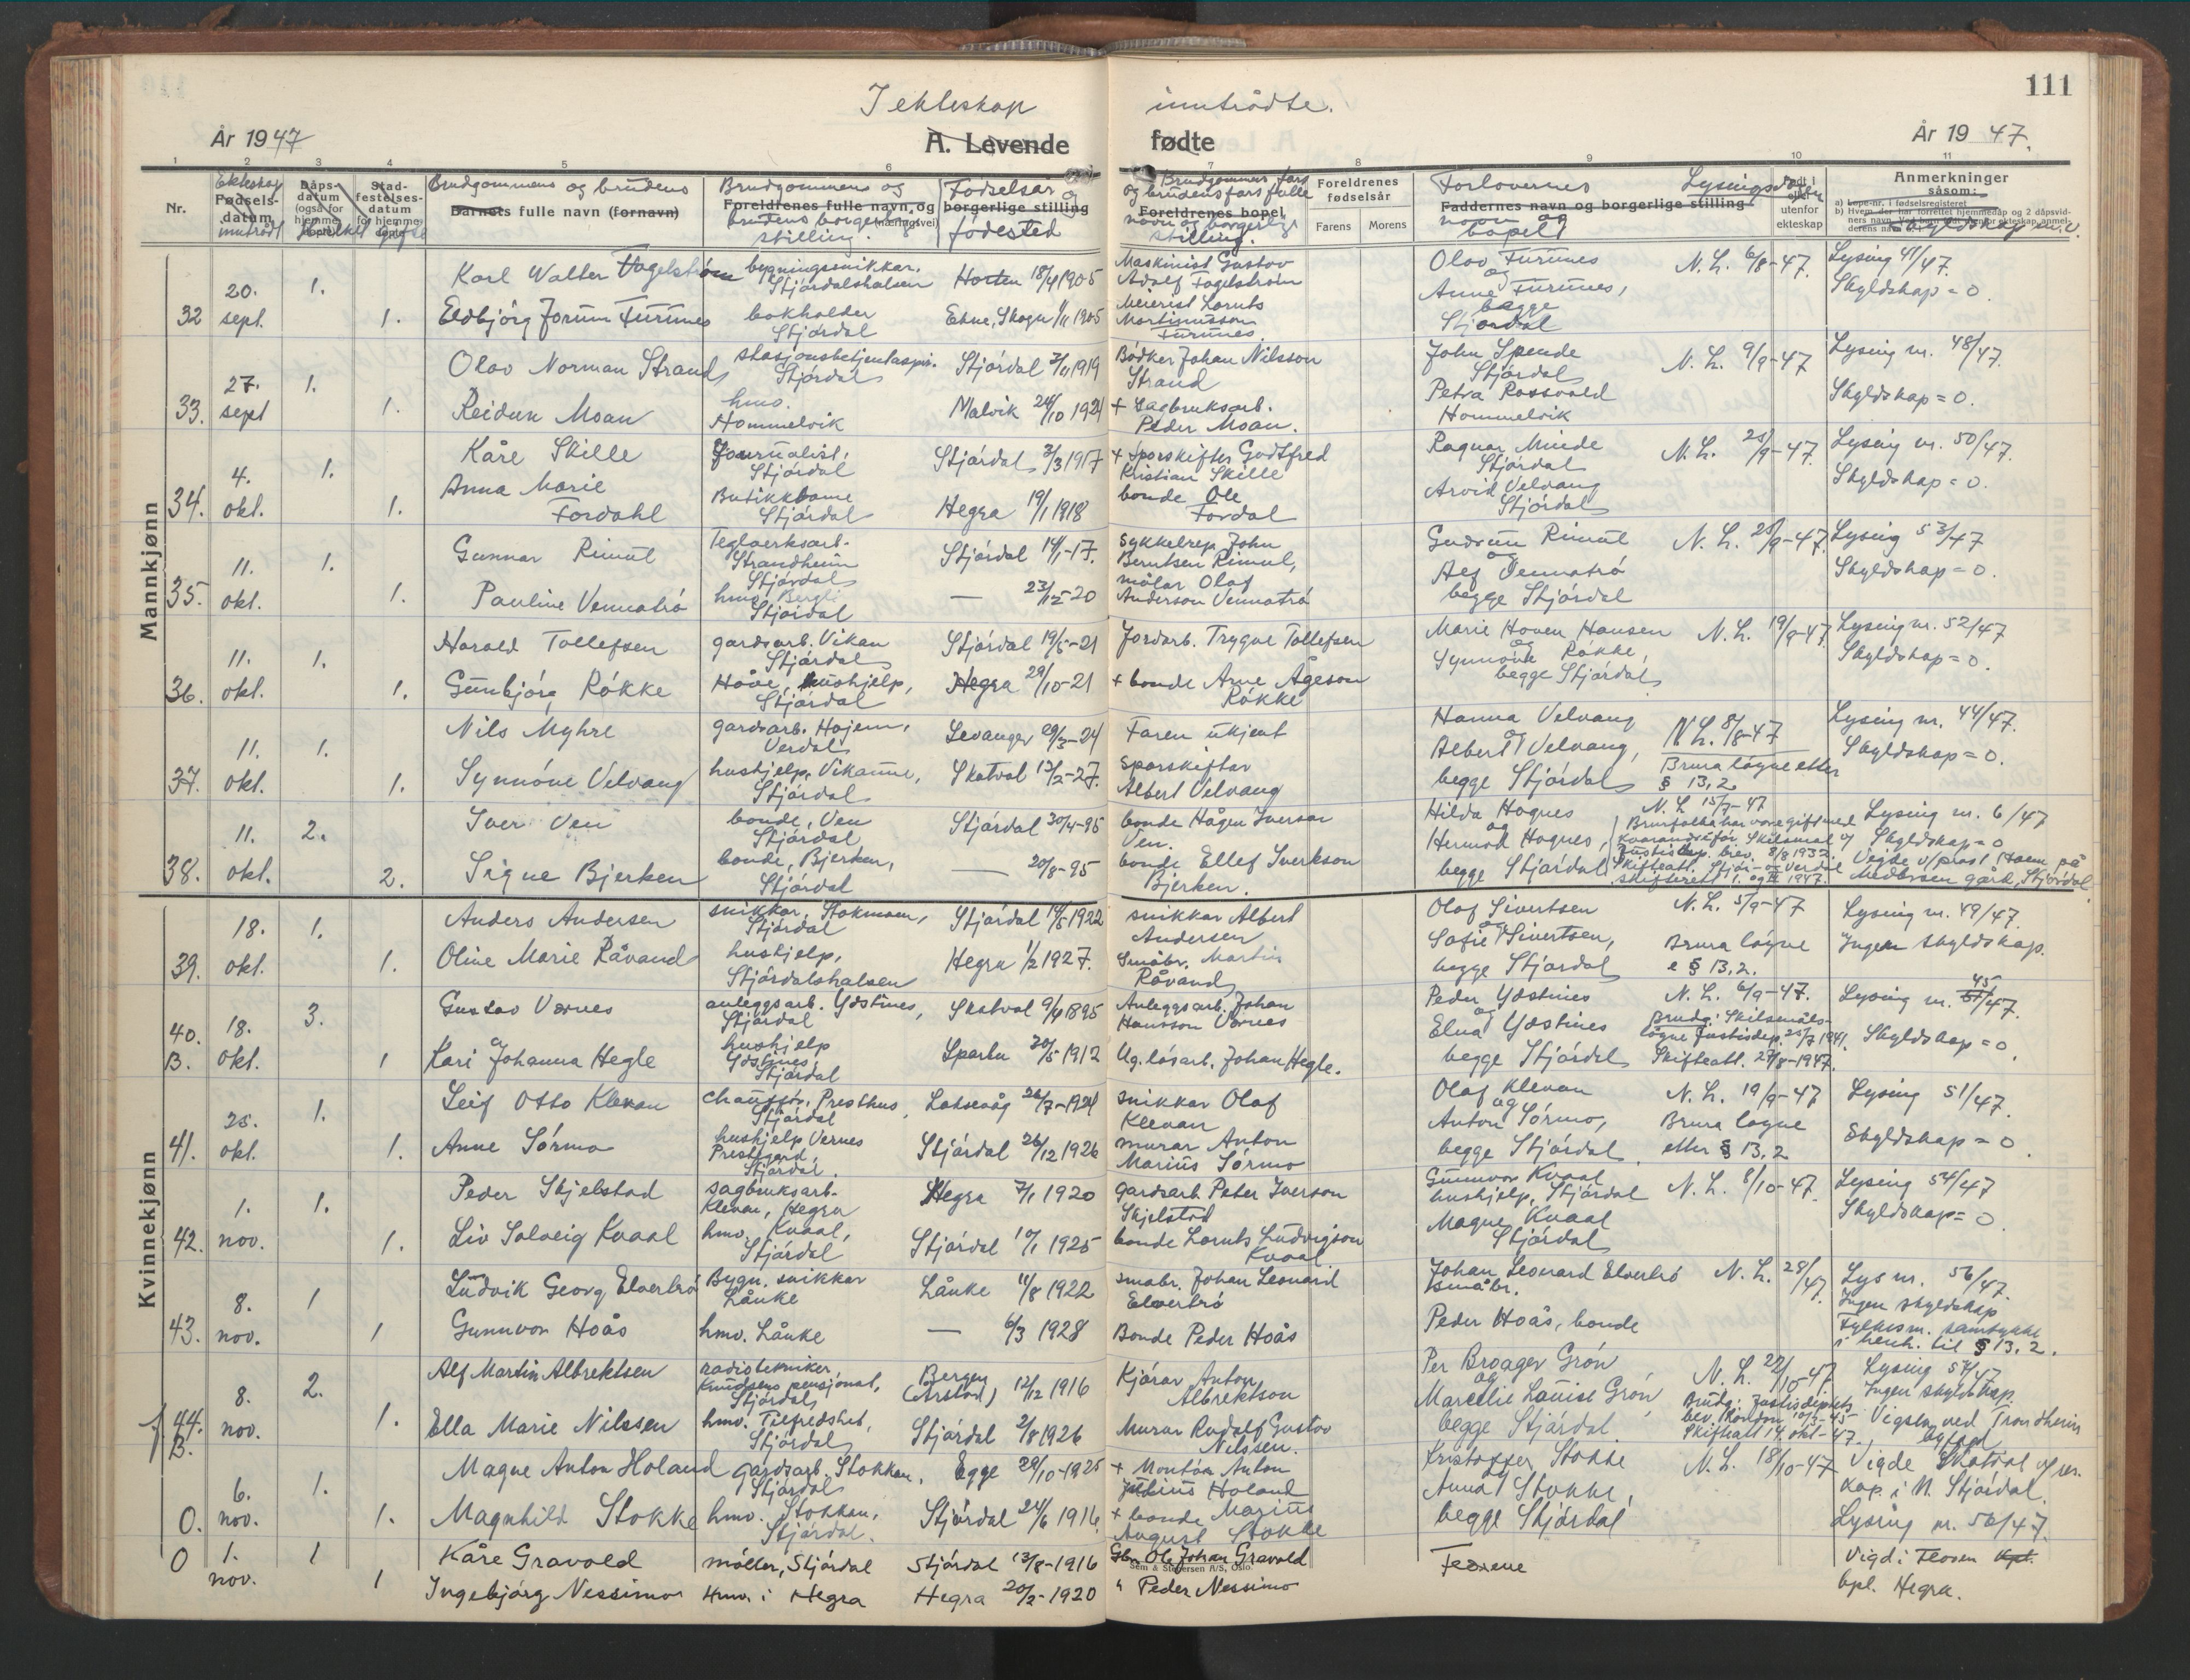 111
I ekteskap inntrådte.
År 1947 A. Levende fødte År 1947.
1 2 3 4 5 6 7 8 9 10 11
Nr.
Ekteskap Fødsels-datum inntrådt
Dåps-datum (også for hjemme-døpte)
Stad-festelses-datum for hjemme-døpte
Brudgommens og brudens
Barnets fulle navn (fornavn)
Brudgommens og
Foreldrenes fulle navn og borgerlige stilling
brudens borgerlige (næringsvei)
stilling.
Fødselsår og
fødested
Brudgommens fars
og brudens fars fulle
Foreldrenes bopel
navn og borgerlige
stilling.
Foreldrenes fødselsår
Farens Morens
Forlovernes
Faddernes navn og borgerlige stilling
navn og
bopel
Lysingsdatum
Født i eller utenfor ekteskap
Anmerkninger
såsom:
a) Løpe-nr. i fødselsregisteret
Skyldskap m.v.
Mannkjønn
32 20. sept. 1. 1.
Karl Walter Fagelstrøm bygningssnikkar. Stjørdalshalsen Horten 18/4 1905
Maskinist Gustav Adolf Fagelstrøm
Eldbjørg Jorunn Furunes bokholder Stjørdal Ekne, Skogn 1/11 1905
Meierist Lornts Martinusson Furunes
Olav Furunes og Anna Furunes, begge Stjørdal
N. L. 6/8-47. Lysing 41/47. Skyldskap = 0.
33. 27. sept 1. 1.
Olav Norman Strand stasjonsbetjentaspir. Stjørdal Stjørdal 3/11 1919
Bødker Johan Nilsson Strand
Reidun Moan hmo. Hommelvik Malvik 24/10 1921
+ Sagbruksarb. Peder Moan.
John Spende Stjørdal
Petra Rossvold Hommelvik
N. L. 9/9-47 Lysing nr. 48/47. Skyldskap = 0.
34. 4. okt. 1. 1.
Kåre Skille Journalist, Stjørdal Stjørdal 3/3 1917
+ Sporskifter Godtfred Kristian Skille
Anna Marie Fordahl Butikkdame Stjørdal Hegra 19/1 1918
bonde Ole Fordal
Ragnar Minde Stjørdal
Arvid Velvang Stjørdal
N. L. 25/9-47. Lysing nr. 50/47. Skyldskap = 0.
35. 11. okt. 1. 1.
Gunnar Rimul Teglverksarb. Strandheim Stjørdal Stjørdal 14/1-17.
sykkelrep. John Berntsen Rimul,
Pauline Vennatrø hmo Bergli Stjørdal — 23/12-20
målar Olaf Anderson Vennatrø
Gudrun Rimul og Alf Vennatrø begge Stjørdal
N. L. 25/9-47. Lysing 53/47 Skyldskap = 0.
36. 11. okt. 1. 1.
Harald Tollefsen gardsarb. Vikan Stjørdal Stjørdal 19/5-21
Jordarb. Trygve Tollefsen
Gunbjørg Røkke Håve, hushjelp, Stjørdal Hegra 29/10-21
+ bonde Arne Ågeson Røkke
Marie Hoven Hansen og Synnøve Røkke, begge Stjørdal
N. L. 19/9-47. Lysing nr. 52/47 Skyldskap = 0.
37. 11. okt. 1. 1.
Nils Myhre gardsarb. Hojem, Verdal Levanger 29/3-24
Faren ukjent
Synnøve Velvang hushjelp, Vikanne, Stjørdal Skatval 13/2-27.
sporskiftar Albert Velvang
Hanna Velvang og Albert Velvang, begge Stjørdal
N. L. 8/8-47 Brura løyve etter § 13,2
Lysing nr. 44/47. Skyldskap = 0.
38. 11. okt. 2. 2.
Iver Ven bonde, Ven Stjørdal Stjørdal 30/4-95
bonde Hågen Iversen Ven.
Signe Bjerken bonde, Bjerken, Stjørdal — 20/8-95
bonde Ellef Sverkson Bjerken.
Hilda Hognes og Hermod Hognes, begge Stjørdal
N. L. 15/7-47 Brurfolka har vore gift med kvarandre før. Skilsmål v/ Justisdep. brev. 8/8 1932. Skifteatt. Stjør- og Verdal skifterett 1947.
Lysing nr. 6/47 Skyldskap = 0 Vigde v/prost Hoem på Medbroen gård, Stjørdal.
Kvinnekjønn
39. 18. okt. 1. 1.
Anders Andersen snikkar, Stokmoen, Stjørdal Stjørdal 14/5 1922
snikkar Albert Andersen
Oline Marie Råvand hushjelp, Stjørdalshalsen Hegra 1/2 1927.
Småbr. Martin Råvand
Olaf Sivertsen og Sofie Sivertsen, begge Stjørdal
N. L. 5/9-47 Brura løyve e § 13,2.
Lysing nr. 49/47. Ingen skyldskap.
40. B. 18. okt. 3. 1
Gustav Vernes anleggsarb. Ydstines, Stjørdal Skatval 9/4 1895
Anleggsarb. Johan Hansson Vernes
Kari Johanna Hegle hushjelp Ydstines, Stjørdal Sparbu 20/5 1912
Ug. løsarb. Johan Hegle.
Peder Ydstines og Elna Ydstines begge Stjørdal
N. L. 6/9-47. Brudg: Skilsmåls-løyve Justisdep. 25/7 1941. Skifteatt. 27/8-1947.
Lysing nr. 45/47. Skyldskap = 0.
41. 25. okt. 1. 1.
Leif Otto Klevan chauffør, Presthus, Stjørdal Laksevåg 26/7-1921
snikkar Olaf Klevan
Anne Sørmo hushjelp Vernes Prestegard, Stjørdal. Stjørdal 26/12 1926
murar Anton Marius Sørmo
Olaf Klevan og Anton Sørmo, begge Stjørdal.
N. L. 19/9-47 Brura løyve etter § 13,2
Lysing 51/47. Skyldskap = 0.
42. 1. nov. 1. 1.
Peder Skjelstad sagbruksarb. Klevan, Hegra Hegra 7/1 1920
gardsarb. Peter Iverson Skjelstad
Liv Solveig Kvaal hmo, Kvaal, Stjørdal Stjørdal 10/1 1925
bonde Lornts Ludvigson Kvaal
Gunnvor Kvaal hushjelp, Stjørdal
Magne Kvaal Stjørdal
N. L. 8/10-47. Lysing 54/47 Skyldskap = 0.
43. 8. nov. 1 1
Ludvik Georg Elvertrø Bygn. snikkar Lånke Lånke 11/8 1922
småbr. Johan Leonard Elvertrø
Gunnvor Hoås hmo. Lånke — 6/3 1928
Bonde Peder Hoås
Johan Leonard Elvertrø småbr.
Peder Hoås, bonde
N. L. 28/47. Lys nr. 56/47. Ingen skyldskap Fylkesm. samtykke i henh. til § 13,2.
44. B. 8. nov. 2. 1.
Alf Martin Albrektsen radiotekniker, Knudsens pensjonat, Stjørdal Bergen (Årstad) 12/12 1916
Kjørar Anton Albrektson
Ella Marie Nilssen hmo. Tilfredshet, Stjørdal Stjørdal 2/8 1926
Murar Rudolf Gustav Nilssen.
Per Broager Grøn og Marcelie Louise Grøn begge Stjørdal.
N. L. 22/10-47. Brudg: Justisdeptets bev. Skifteatt 14. okt-47.
Lysing 57/47 Ingen skyldskap Vigsla ved Trondheim byfogd
0. 6. nov. 1. 1.
Magne Anton Holand gardsarb. Stokkan, Stjørdal Egge 29/10-1925
+ Montør Anton Julius Holand
Magnhild Stokke hmo. Stokkan, Stjørdal. Stjørdal 24/6 1916.
+ bonde Marius August Stokke
Kristoffer Stokke Anna Stokke, begge Stjørdal
N. L. 18/10-47 Vigde Skatval v/ res. kap. i N. Stjørdal. Lysing nr. 50/47.
0 1. nov. 1 1
Kåre Gravold møller, Stjørdal Stjørdal 13/8-1916
Gbr. Ole Johan Gravold
Sem & Stenersen A/S, Oslo.
Ingebjørg Nessimo Hmv. i Hegra Hegra 20/2-1920
" Peder Nessimo
Fedrene
Vigd i Floren kpl. Hegra.